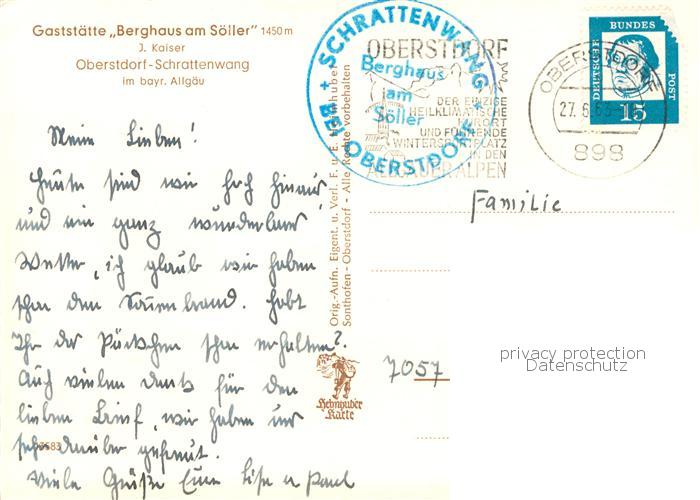 Gaststätte „Berghaus am Söller" 1450 m
J. Kaiser
Oberstdorf-Schrattenwang
im bayr. Allgäu
SCHRATTENWANG
Berghaus
am
Söller
BEI OBERSTDORF
OBERSTDORF
DER EINZIGE
HEILKLIMATISCHE
KURORT
UND FÜHRENDE
WINTERSPORTPLATZ
IN DEN
ALLGÄUER ALPEN
OBERSTDORF
27. 6. 63
898
DEUTSCHE BUNDES POST
15
Meine Lieben!
Heute sind wir hoch hinaus
und ein ganz wunderbar
Wetter, ich glaub wir haben
schon den Sonnenbrand. Habt
Ihr das Päckchen schon erhalten?
Auch vielen Dank für den
lieben Brief, wir haben uns
sehr darüber gefreut.
Viele Grüße Eure Lisa u Paul
Orig.-Aufn. Eigent. u. Verl. F. u. E. Heimhuber
Sonthofen - Oberstdorf - Alle Rechte vorbehalten
Heimhuber
Karte
Familie
7057
privacy protection
Datenschutz